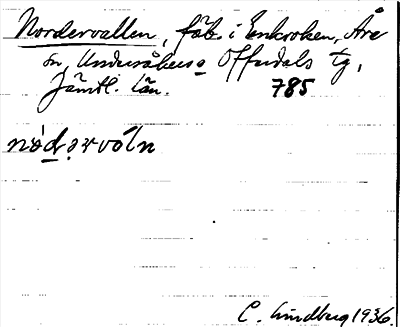 Nordervallen, fäb. i Enkroken, Åre
sn, Undersåkers o Offerdals tg,
Jämtl. län. 785
nɷ́d̲ərvóln
C. Lindberg 1936.